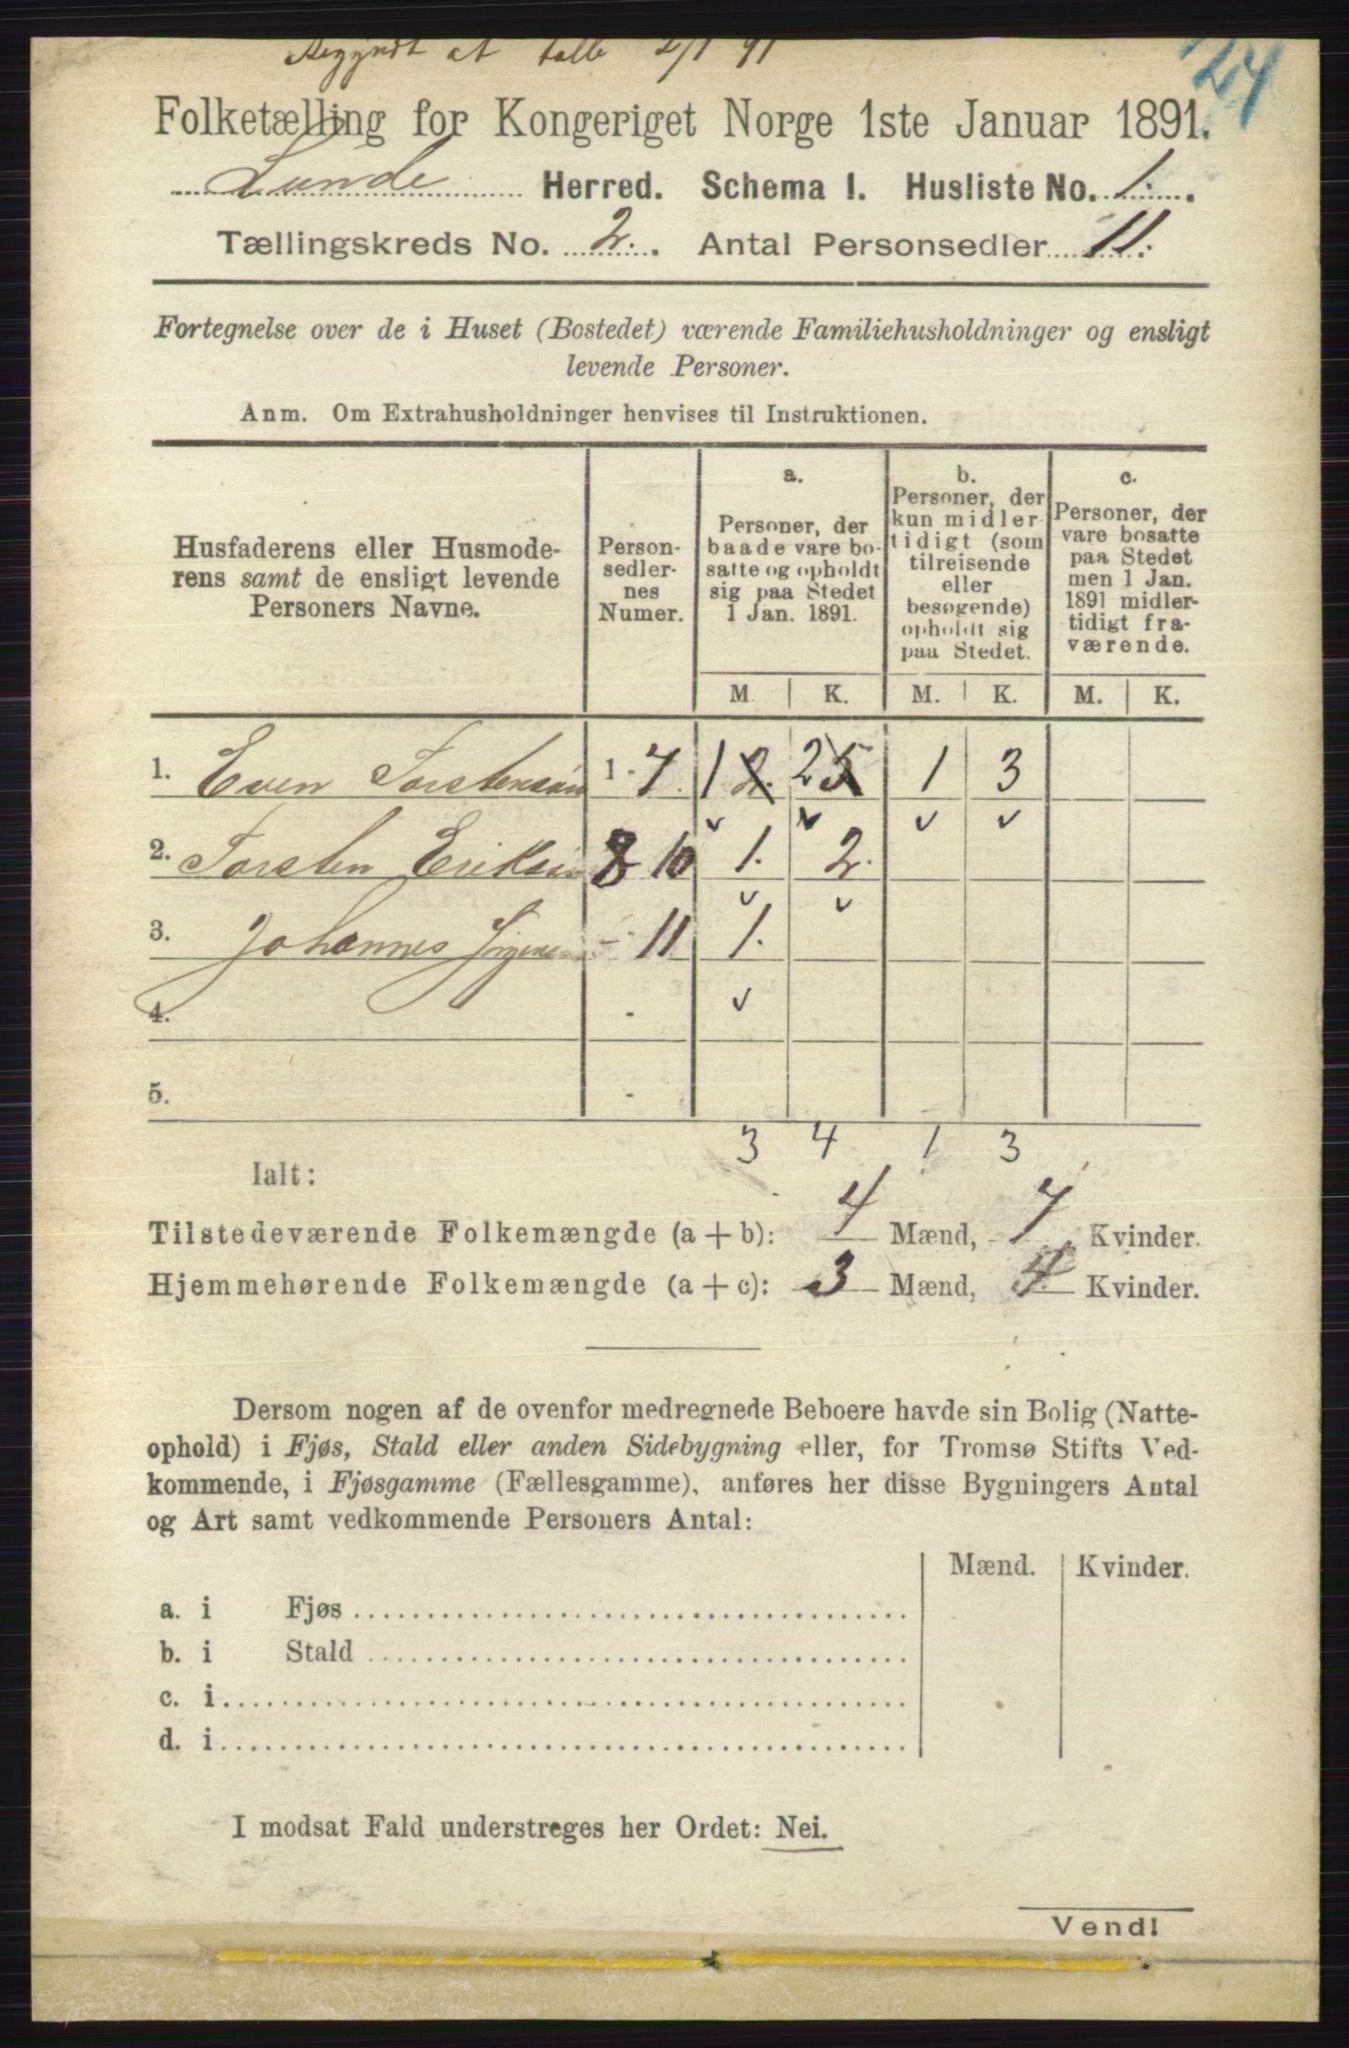 Begyndt at tælle 2/1 91
24
Folketælling for Kongeriget Norge 1ste Januar 1891.
Lunde Herred. Schema I. Husliste No. 1.
Tællingskreds No. 2. Antal Personsedler 11.
Fortegnelse over de i Huset (Bostedet) værende Familiehusholdninger og ensligt
levende Personer.
Anm. Om Extrahusholdninger henvises til Instruktionen.
Husfaderens eller Husmode-
rens samt de ensligt levende
Personers Navne.
Person-
sedler-
nes
Numer.
a.
Personer, der
baade vare bo-
satte og opholdt
sig paa Stedet
1 Jan. 1891.
b.
Personer, der
kun midler-
tidigt (som
tilreisende
eller
besøgende)
opholdt sig
paa Stedet.
c.
Personer, der
vare bosatte
paa Stedet
men 1 Jan.
1891 midler-
tidigt fra-
værende.
M. K. M. K. M. K.
1. Even Torstensen 1 - 7. 1 2. 2 5 1 3
2. Torsten Eriksen 8 10 1. 2.
3. Johannes Jørgensen - 11 1.
4. -
5. -
3 4 1 3
Ialt:
Tilstedeværende Folkemængde (a + b): 4 Mænd, 7 Kvinder.
Hjemmehørende Folkemængde (a + c): 3 Mænd, 4 Kvinder.
Dersom nogen af de ovenfor medregnede Beboere havde sin Bolig (Natte-
ophold) i Fjøs, Stald eller anden Sidebygning eller, for Tromsø Stifts Ved-
kommende, i Fjøsgamme (Fællesgamme), anføres her disse Bygningers Antal
og Art samt vedkommende Personers Antal:
Mænd. Kvinder.
a. i Fjøs
b. i Stald
c. i
d. i
I modsat Fald understreges her Ordet: Nei.
Vend!